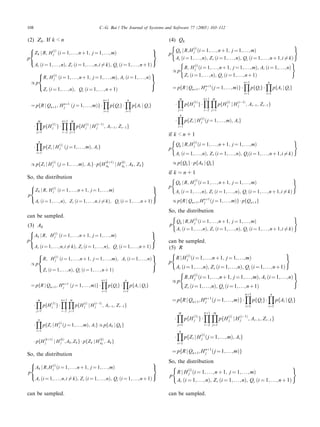 108
C.-G. Bai / The Journal of Systems and Software 75 (2005) 103–112
(2) Z_k. If k < n
p{ Z_k | R, H_i^{(j)} (i = 1,…,n+1, j = 1,…,m)
A_i (i = 1,…,n), Z_i (i = 1,…,n, i ≠ k), Q_i (i = 1,…,n+1) }
∝ p{ R, H_i^{(j)} (i = 1,…,n+1, j = 1,…,m), A_i (i = 1,…,n)
Z_i (i = 1,…,n), Q_i (i = 1,…,n+1) }
= p{R | Q_{n+1}, H_j^{n+1} (j = 1,…,m)} · ∏_{i=1}^{n+1} p{Q_i} · ∏_{i=1}^{n} p{A_i | Q_i}
· ∏_{j=1}^{m} p{H_1^{(j)}} · ∏_{i=2}^{n+1} ∏_{j=1}^{m} p{H_i^{(j)} | H_{i-1}^{(j)}, A_{i-1}, Z_{i-1}}
· ∏_{i=1}^{n} p{Z_i | H_i^{(j)} (j = 1,…,m), A_i}
So, the distribution
p{ Z_k | R, H_i^{(j)} (i = 1,…,n+1, j = 1,…,m)
A_i (i = 1,…,n), Z_i (i = 1,…,n, i ≠ k), Q_i (i = 1,…,n+1) }
can be sampled.
(3) A_k
p{ A_k | R, H_i^{(j)} (i = 1,…,n+1, j = 1,…,m)
A_i (i = 1,…,n, i ≠ k), Z_i (i = 1,…,n), Q_i (i = 1,…,n+1) }
∝ p{ R, H_i^{(j)} (i = 1,…,n+1, j = 1,…,m), A_i (i = 1,…,n)
Z_i (i = 1,…,n), Q_i (i = 1,…,n+1) }
= p{R | Q_{n+1}, H_j^{n+1} (j = 1,…,m)} · ∏_{i=1}^{n+1} p{Q_i} · ∏_{i=1}^{n} p{A_i | Q_i}
· ∏_{j=1}^{m} p{H_1^{(j)}} · ∏_{i=2}^{n+1} ∏_{j=1}^{m} p{H_i^{(j)} | H_{i-1}^{(j)}, A_{i-1}, Z_{i-1}}
So, the distribution
p{ A_k | R, H_i^{(j)} (i = 1,…,n+1, j = 1,…,m)
A_i (i = 1,…,n, i ≠ k), Z_i (i = 1,…,n), Q_i (i = 1,…,n+1) }
can be sampled.
(4) Q_k
p{ Q_k | R, H_i^{(j)} (i = 1,…,n+1, j = 1,…,m)
A_i (i = 1,…,n), Z_i (i = 1,…,n), Q_i (i = 1,…,n+1, i ≠ k) }
∝ p{ R, H_i^{(j)} (i = 1,…,n+1, j = 1,…,m), A_i (i = 1,…,n)
Z_i (i = 1,…,n), Q_i (i = 1,…,n+1) }
= p{R | Q_{n+1}, H_j^{n+1} (j = 1,…,m)} · ∏_{i=1}^{n+1} p{Q_i} · ∏_{i=1}^{n} p{A_i | Q_i}
· ∏_{j=1}^{m} p{H_1^{(j)}} · ∏_{i=2}^{n+1} ∏_{j=1}^{m} p{H_i^{(j)} | H_{i-1}^{(j)}, A_{i-1}, Z_{i-1}}
· ∏_{i=1}^{n} p{Z_i | H_i^{(j)} (j = 1,…,m), A_i}
if k < n + 1
p{ Q_k | R, H_i^{(j)} (i = 1,…,n+1, j = 1,…,m)
A_i (i = 1,…,n), Z_i (i = 1,…,n), Q_i (i = 1,…,n+1, i ≠ k) }
∝ p{Q_k} · p{A_k | Q_k}
if k = n + 1
p{ Q_k | R, H_i^{(j)} (i = 1,…,n+1, j = 1,…,m)
A_i (i = 1,…,n), Z_i (i = 1,…,n), Q_i (i = 1,…,n+1, i ≠ k) }
∝ p{R | Q_{n+1}, H_j^{n+1} (j = 1,…,m)} · p{Q_{n+1}}
So, the distribution
p{ Q_k | R, H_i^{(j)} (i = 1,…,n+1, j = 1,…,m)
A_i (i = 1,…,n), Z_i (i = 1,…,n), Q_i (i = 1,…,n+1, i ≠ k) }
can be sampled.
(5) R
p{ R | H_i^{(j)} (i = 1,…,n+1, j = 1,…,m)
A_i (i = 1,…,n), Z_i (i = 1,…,n), Q_i (i = 1,…,n+1) }
∝ p{ R, H_i^{(j)} (i = 1,…,n+1, j = 1,…,m), A_i (i = 1,…,n)
Z_i (i = 1,…,n), Q_i (i = 1,…,n+1) }
= p{R | Q_{n+1}, H_j^{n+1} (j = 1,…,m)} · ∏_{i=1}^{n+1} p{Q_i} · ∏_{i=1}^{n} p{A_i | Q_i}
· ∏_{j=1}^{m} p{H_1^{(j)}} · ∏_{i=2}^{n+1} ∏_{j=1}^{m} p{H_i^{(j)} | H_{i-1}^{(j)}, A_{i-1}, Z_{i-1}}
· ∏_{i=1}^{n} p{Z_i | H_i^{(j)} (j = 1,…,m), A_i}
So, the distribution
p{ R | H_i^{(j)} (i = 1,…,n+1, j = 1,…,m)
A_i (i = 1,…,n), Z_i (i = 1,…,n), Q_i (i = 1,…,n+1) }
can be sampled.